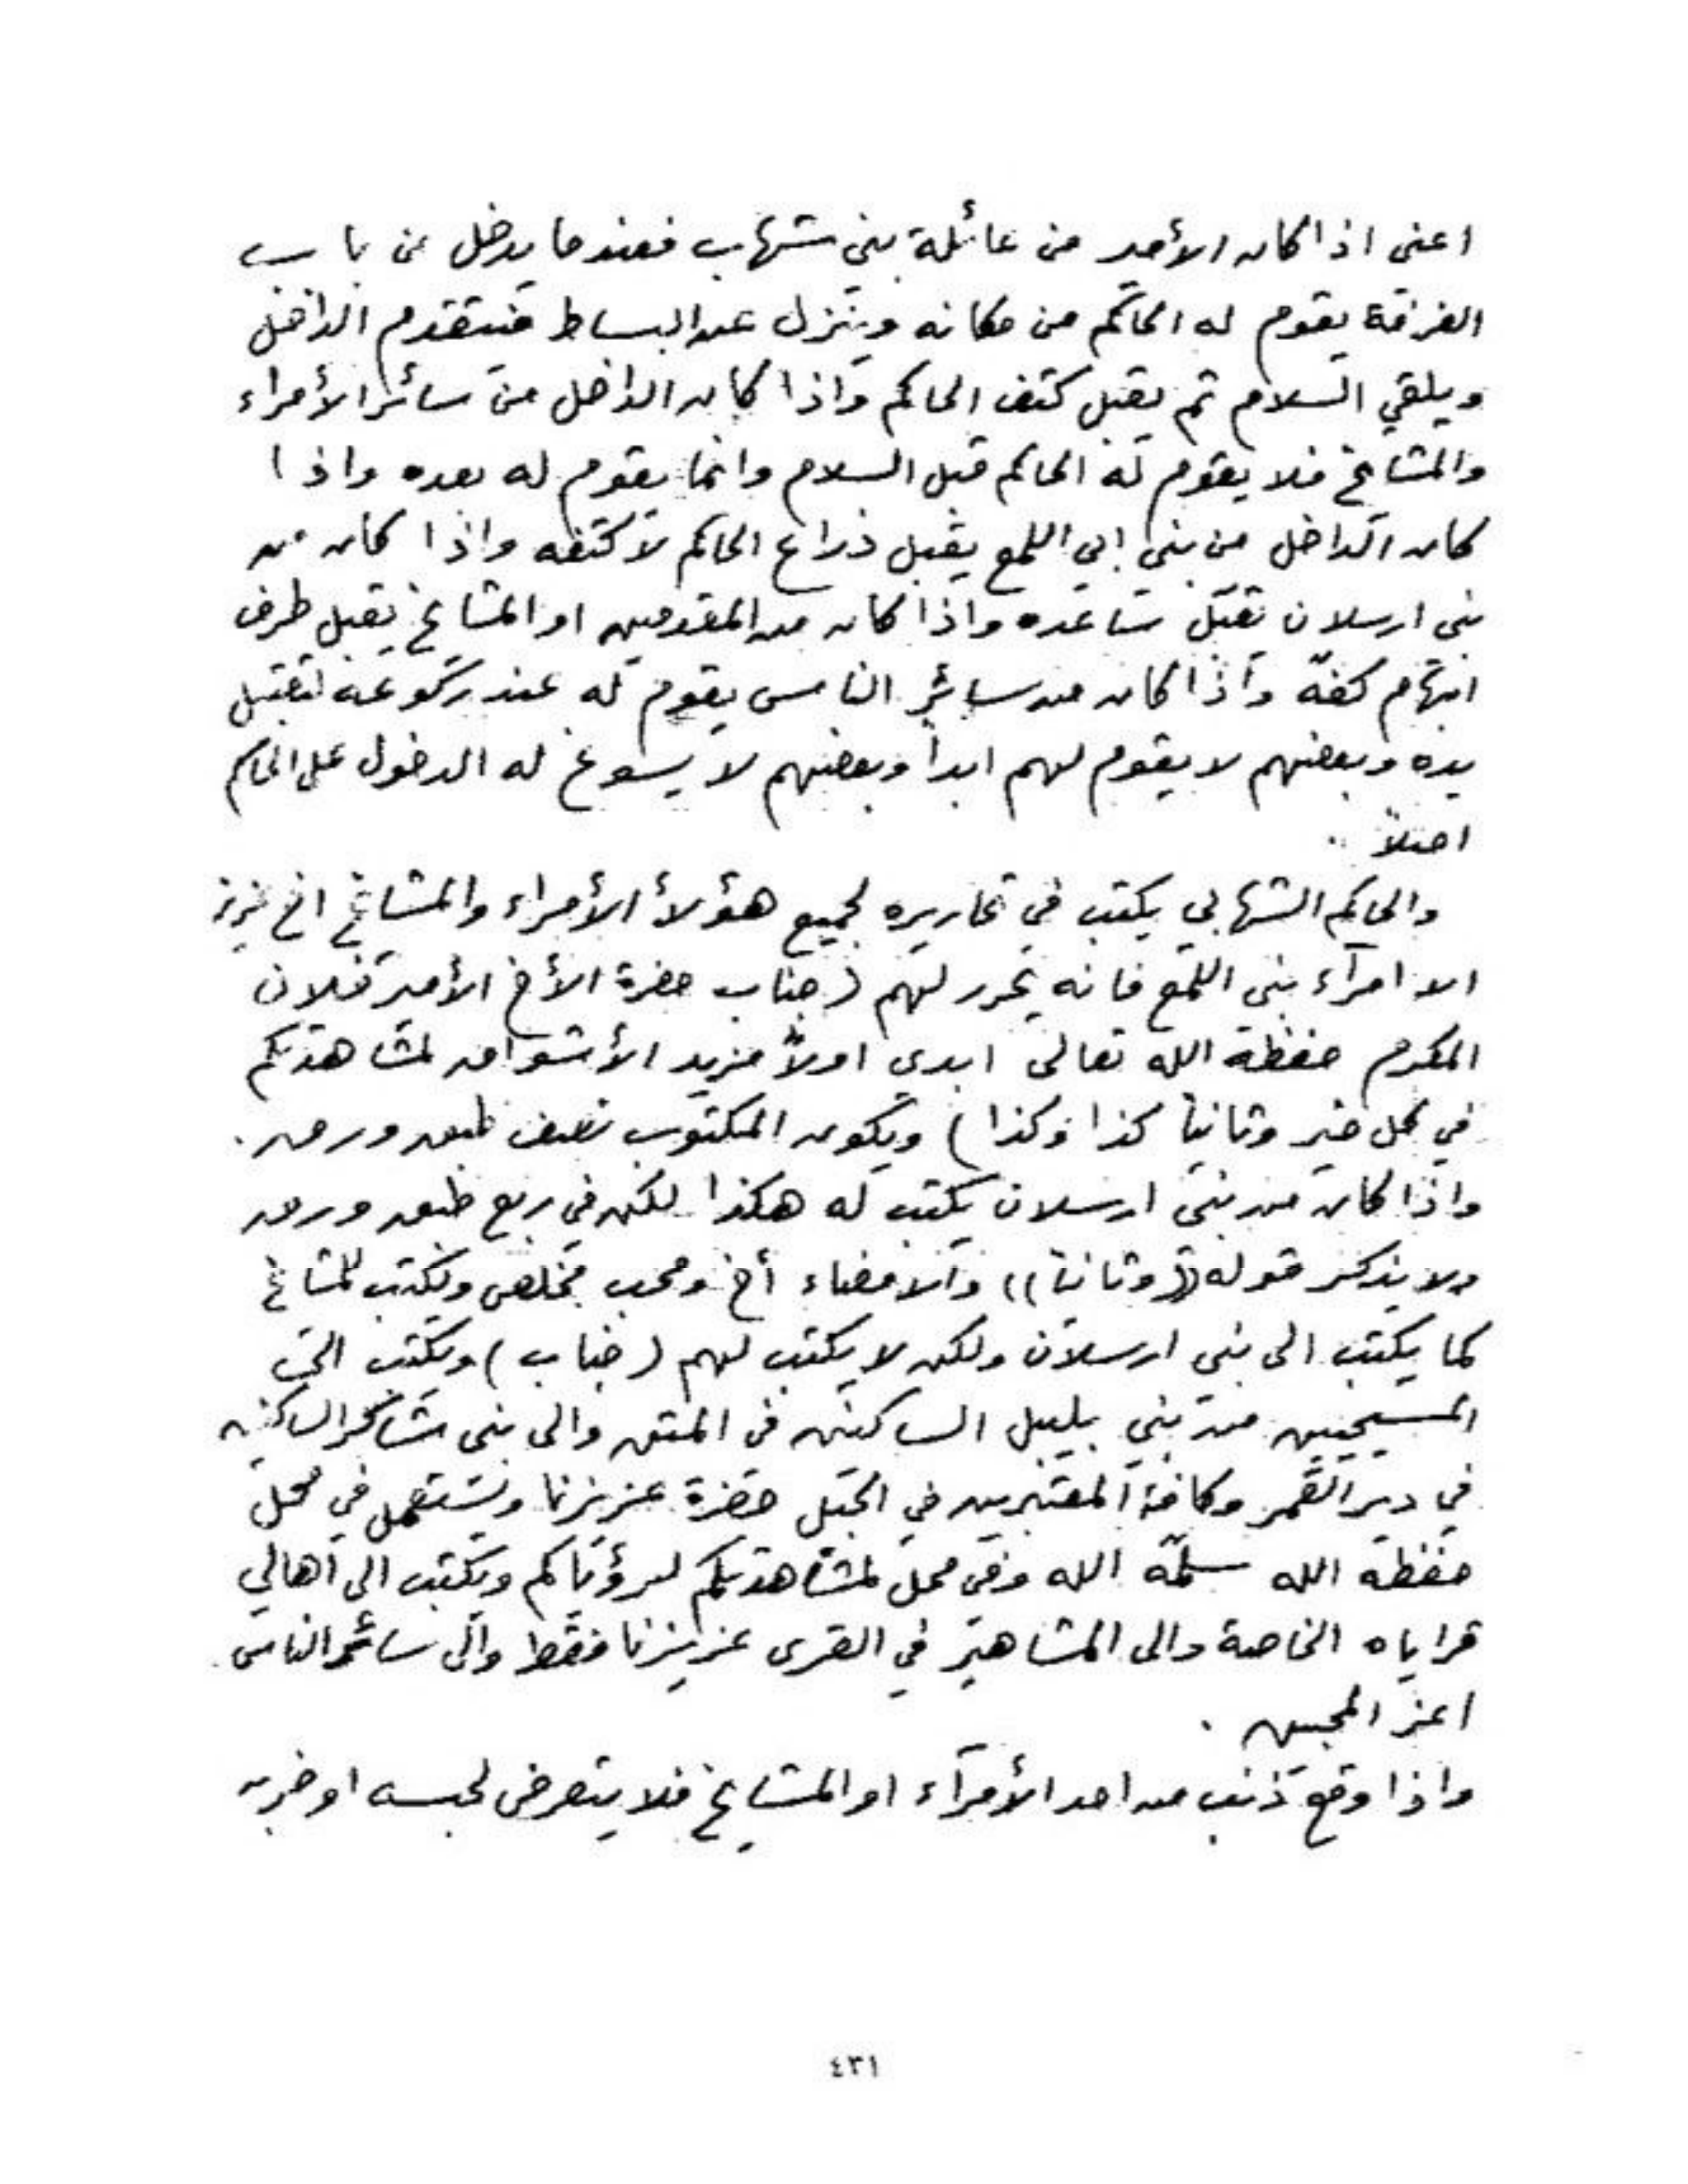 اعني اذا كان الأمير من عائلة بني شهاب فعندما يدخل من باب
الغرفة يقوم له الحاكم من مكانه وينزل عن البساط فيتقدم الداخل
ويلقي السلام ثم يقبل كتف الحاكم واذا كان الداخل من سائر الأمراء
والمشايخ فلا يقوم له الحاكم قبل السلام وانما يقوم له بعده واذا
كان الداخل من بني ابي اللمع يقبل ذراع الحاكم لا كتفه واذا كان من
بني ارسلان يقبل ساعده واذا كان من المقدمين او المشايخ يقبل طرف
ابهام كفه واذا كان من سائر الناس يقوم له عند ركوعه لتقبيل
يده وبعضهم لا يقوم لهم ابداً وبعضهم لا يسوغ له الدخول على الحاكم
اصلاً .
والحاكم الشهابي يكتب في تحاريره لجميع هؤلاء الأمراء والمشايخ اخ عزيز
الا امراء بني اللمع فانه يحرر لهم (جناب حضرة الأخ الأمير فلان
المكرم حفظه الله تعالى ابدي اولاً مزيد الأشواق لمشاهدتكم
في كل خير وثانياً كذا وكذا) ويكون المكتوب نصف طبق ورق .
واذا كان من بني ارسلان يكتب له هكذا لكن في ربع طبق ورق
ولا يذكر قوله ((وثانياً)) والامضاء أخ ومحب مخلص ويكتب للمشايخ
كما يكتب الى بني ارسلان ولكن لا يكتب لهم (جناب) ويكتب الى
المسيحيين من بني بليبل الساكنين في المتن والى بني شاكر الساكنين
في دير القمر وكافة المعتبرين في الجبل حضرة عزيزنا ويستعمل في محل
حفظه الله سلمه الله وفي محل لمشاهدتكم لرؤياكم ويكتب الى اهالي
قراياه الخاصة والى المشاهير في القرى عزيزنا فقط والى سائر الناس
اعز المحبين .
واذا وقع ذنب من احد الأمراء او المشايخ فلا يتعرض لحبسه او ضربه
٤٣١